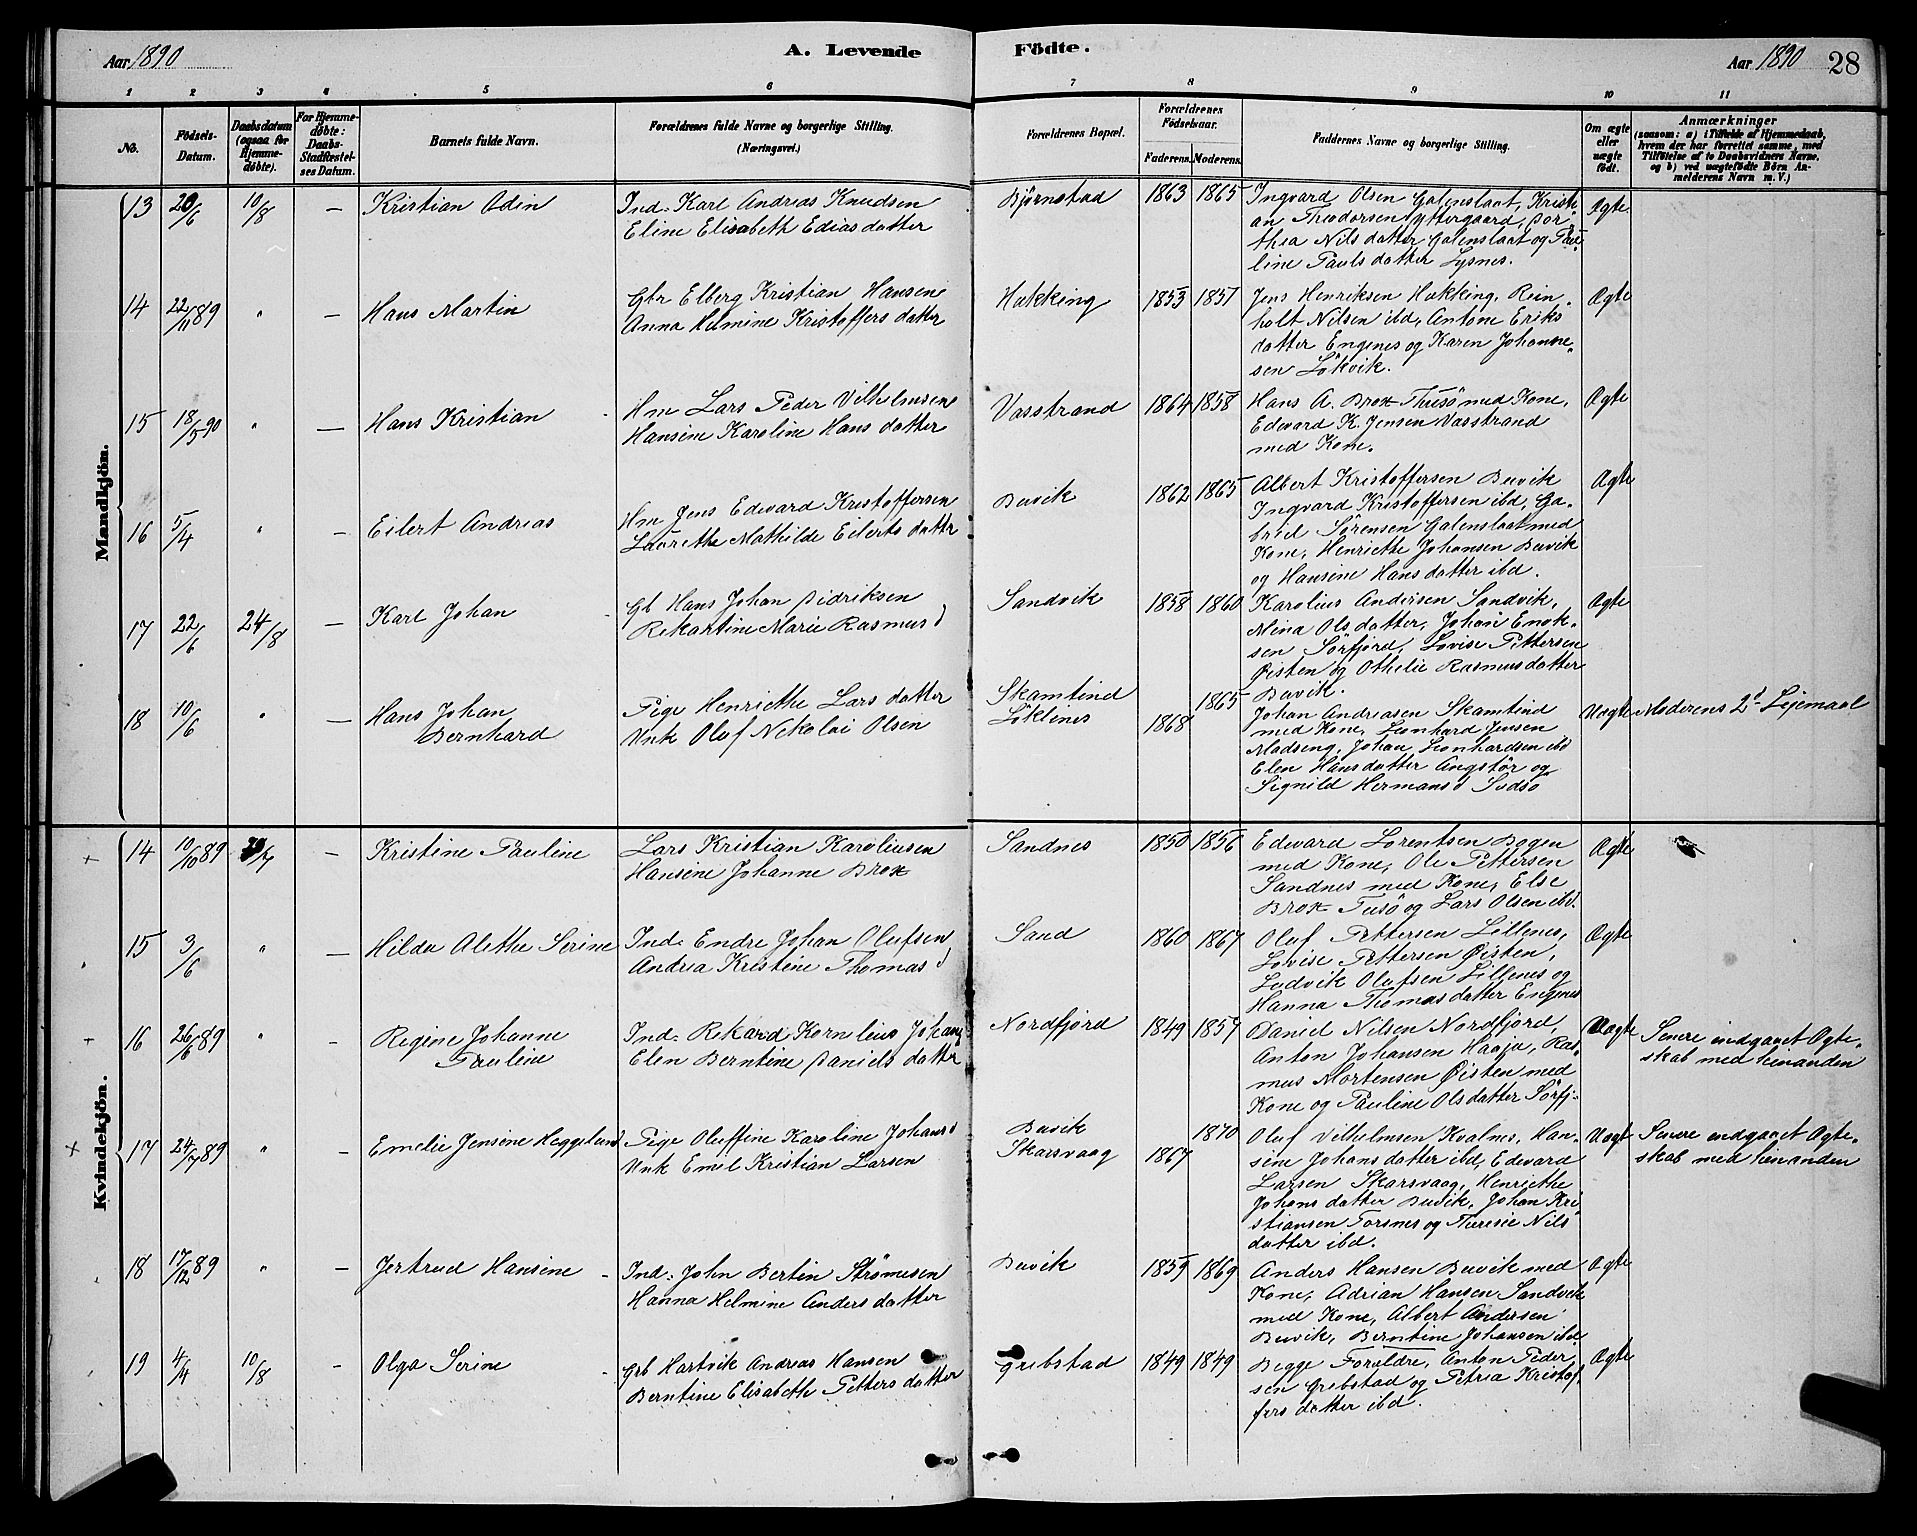 Aar 1890
A. Levende
Födte.
Aar 1890
28
1 2 3 4 5 6 7 8 9 10 11
No.
Födsels-
Datum.
Daabsdatum
(ogsaa for
Hjemme-
döbte).
For Hjemme-
döbte:
Daabs-
Stadfæstel-
ses Datum.
Barnets fulde Navn.
Forældrenes fulde Navne og borgerlige Stilling.
(Næringsvei.)
Forældrenes Bopæl.
Forældrenes
Födselsaar.
Faderens. Moderens.
Faddernes Navne og borgerlige Stilling.
Om ægte
eller
uægte
födt.
Anmærkninger
(saasom: a) i Tilfælde af Hjemmedaab,
hvem der har forrettet samme, med
Tilföielse af to Daabsvidners Navne,
og b) ved uægtefödte Börn An-
melderens Navn m. V.)
Mandkjön.
13 20/6 10/8 — Kristian Odin
Ind. Karl Andreas Knudsen
Eline Elisabeth Ediasdatter
Bjørnstad 1863 1865
Ingvard Olsen Galenslaat, Kristi-
an Theodorsen Yttergaard, Dor-
thea Nilsdatter Galenslaat og Pau-
line Paulsdatter Lysnes.
Ægte
14 22/11 89 " — Hans Martin
Gbr Elberg Kristian Hansen
Anna Helmine Kristoffersdatter
Hakking 1853 1851
Jens Henriksen Hakking, Rein-
holt Nilsen ibd, Antone Eriks
datter Engenes og Karen Johanne-
sen Lökvik.
Ægte
15 18/5 90 " — Hans Kristian
Hm Lars Peder Vilhelmsen
Hansine Karoline Hansdatter
Vasstrand 1864 1858
Hans A. Brox Thusö med Kone,
Edevard K. Jensen Vasstrand
med Kone.
Ægte
16 5/4 " — Eilert Andreas
Hm Jens Edevard Kristoffersen
Laurethe Mathilde Eilertsdatter
Buvik 1862 1865
Albert Kristoffersen Buvik
Ingvard Kristoffersen ibd, Ga-
briel Sörensen Galenslaat med
Kone, Henriethe Johansen Buvik
og Hansine Hansdatter ibd.
Ægte
17 22/6 24/8 — Karl Johan
Gb Hans Johan Didriksen
Rekartine Marie Rasmusd
Sandvik 1858 1860
Karolius Andersen Sandvik,
Mina Olsdatter, Johan Enok-
sen Sörfjord, Lovise Pettersen
Øisten og Othelie Rasmusdatter
Buvik.
Ægte
18 10/6 " — Hans Johan
Bernhard
Pige Henriethe Larsdatter
Unk Oluf Nikolai Olsen
Skamtind
Löklines
1868 1865
Johan Andreasen Skamtind
med Kone, Leonhard Jensen
Madseng, Johan Leonhardsen ibd
Elen Hansdatter Angstör og
Signild Hermansd
Uægte
Moderens 2d Lejemaal
Kvindekjön.
+ 14 10/10 89 — Kristine Pauline
Lars Kristian Karoliusen
Hansine Johanne Brox
Sandnes 1850 1856
Edevard Lorentsen Bogen
med Kone, Ole Pettersen
Sandnes med Kone, Else
Brox Tusö og Lars Olsen ibd.
Ægte
15 3/6 " — Hilda Alethe Serine
Ind. Endre Johan Olufsen
Andrea Kristine Thomasd
Sand 1860 1867
Oluf Pettersen Lillenes,
Lovise Pettersen Øisten,
Ludvik Olufsen Lillenes og
Hanna Thomasdatter Engenes
Ægte
+ 16 26/6 89 " - Regine Johanne
Pauline
Ind. Rekard Kornelius Johans
Elen Berntine Danielsdatter
Nordfjord 1849 1857
Daniel Nilsen Nordfjord,
Anton Johansen Haaja, Ras-
mus Mortensen Øisten med
Kone og Pauline Olsdatter Sörfj.
Uægte
Senere indgaaet Ægte-
skab med hinanden
+ 17 24/7 89 " — Emelie Jensine Heggelund
Pige Oluffine Karoline Johansd
Unk Emel Kristian Larsen
Buvik
Skarsvaag
1867 1870
Oluf Vilhelmsen Kvalnes, Han-
sine Johansdatter ibd, Edevard
Larsen Skarsvaag, Henriethe
Johansdatter Buvik, Johan Kri-
stiansen Forsnes og Theresie Nils
datter ibd.
Uægt
Senere indgaaet Ægte-
skab med hinanden
18 17/12 89 " — Jertrud Hansine
Ind. John Bertin Strömesen
Hanna Helmine Andersdatter
Buvik 1859 1869
Anders Hansen Buvik med
Kone, Adrian Hansen Sandvik
med Kone, Albert Andersen
Buvik, Berntine Johansen ibd
Ægte
19 4/4 10/8 — Olga Serine
Grb Hartvik Andreas Hansen
Berntine Elisabeth Pettersdatter
Grebstad 1849 1849
Begge Forældre, Anton Peder
sen Grebstad og Petria Kristof-
fersdatter ibd.
Ægte